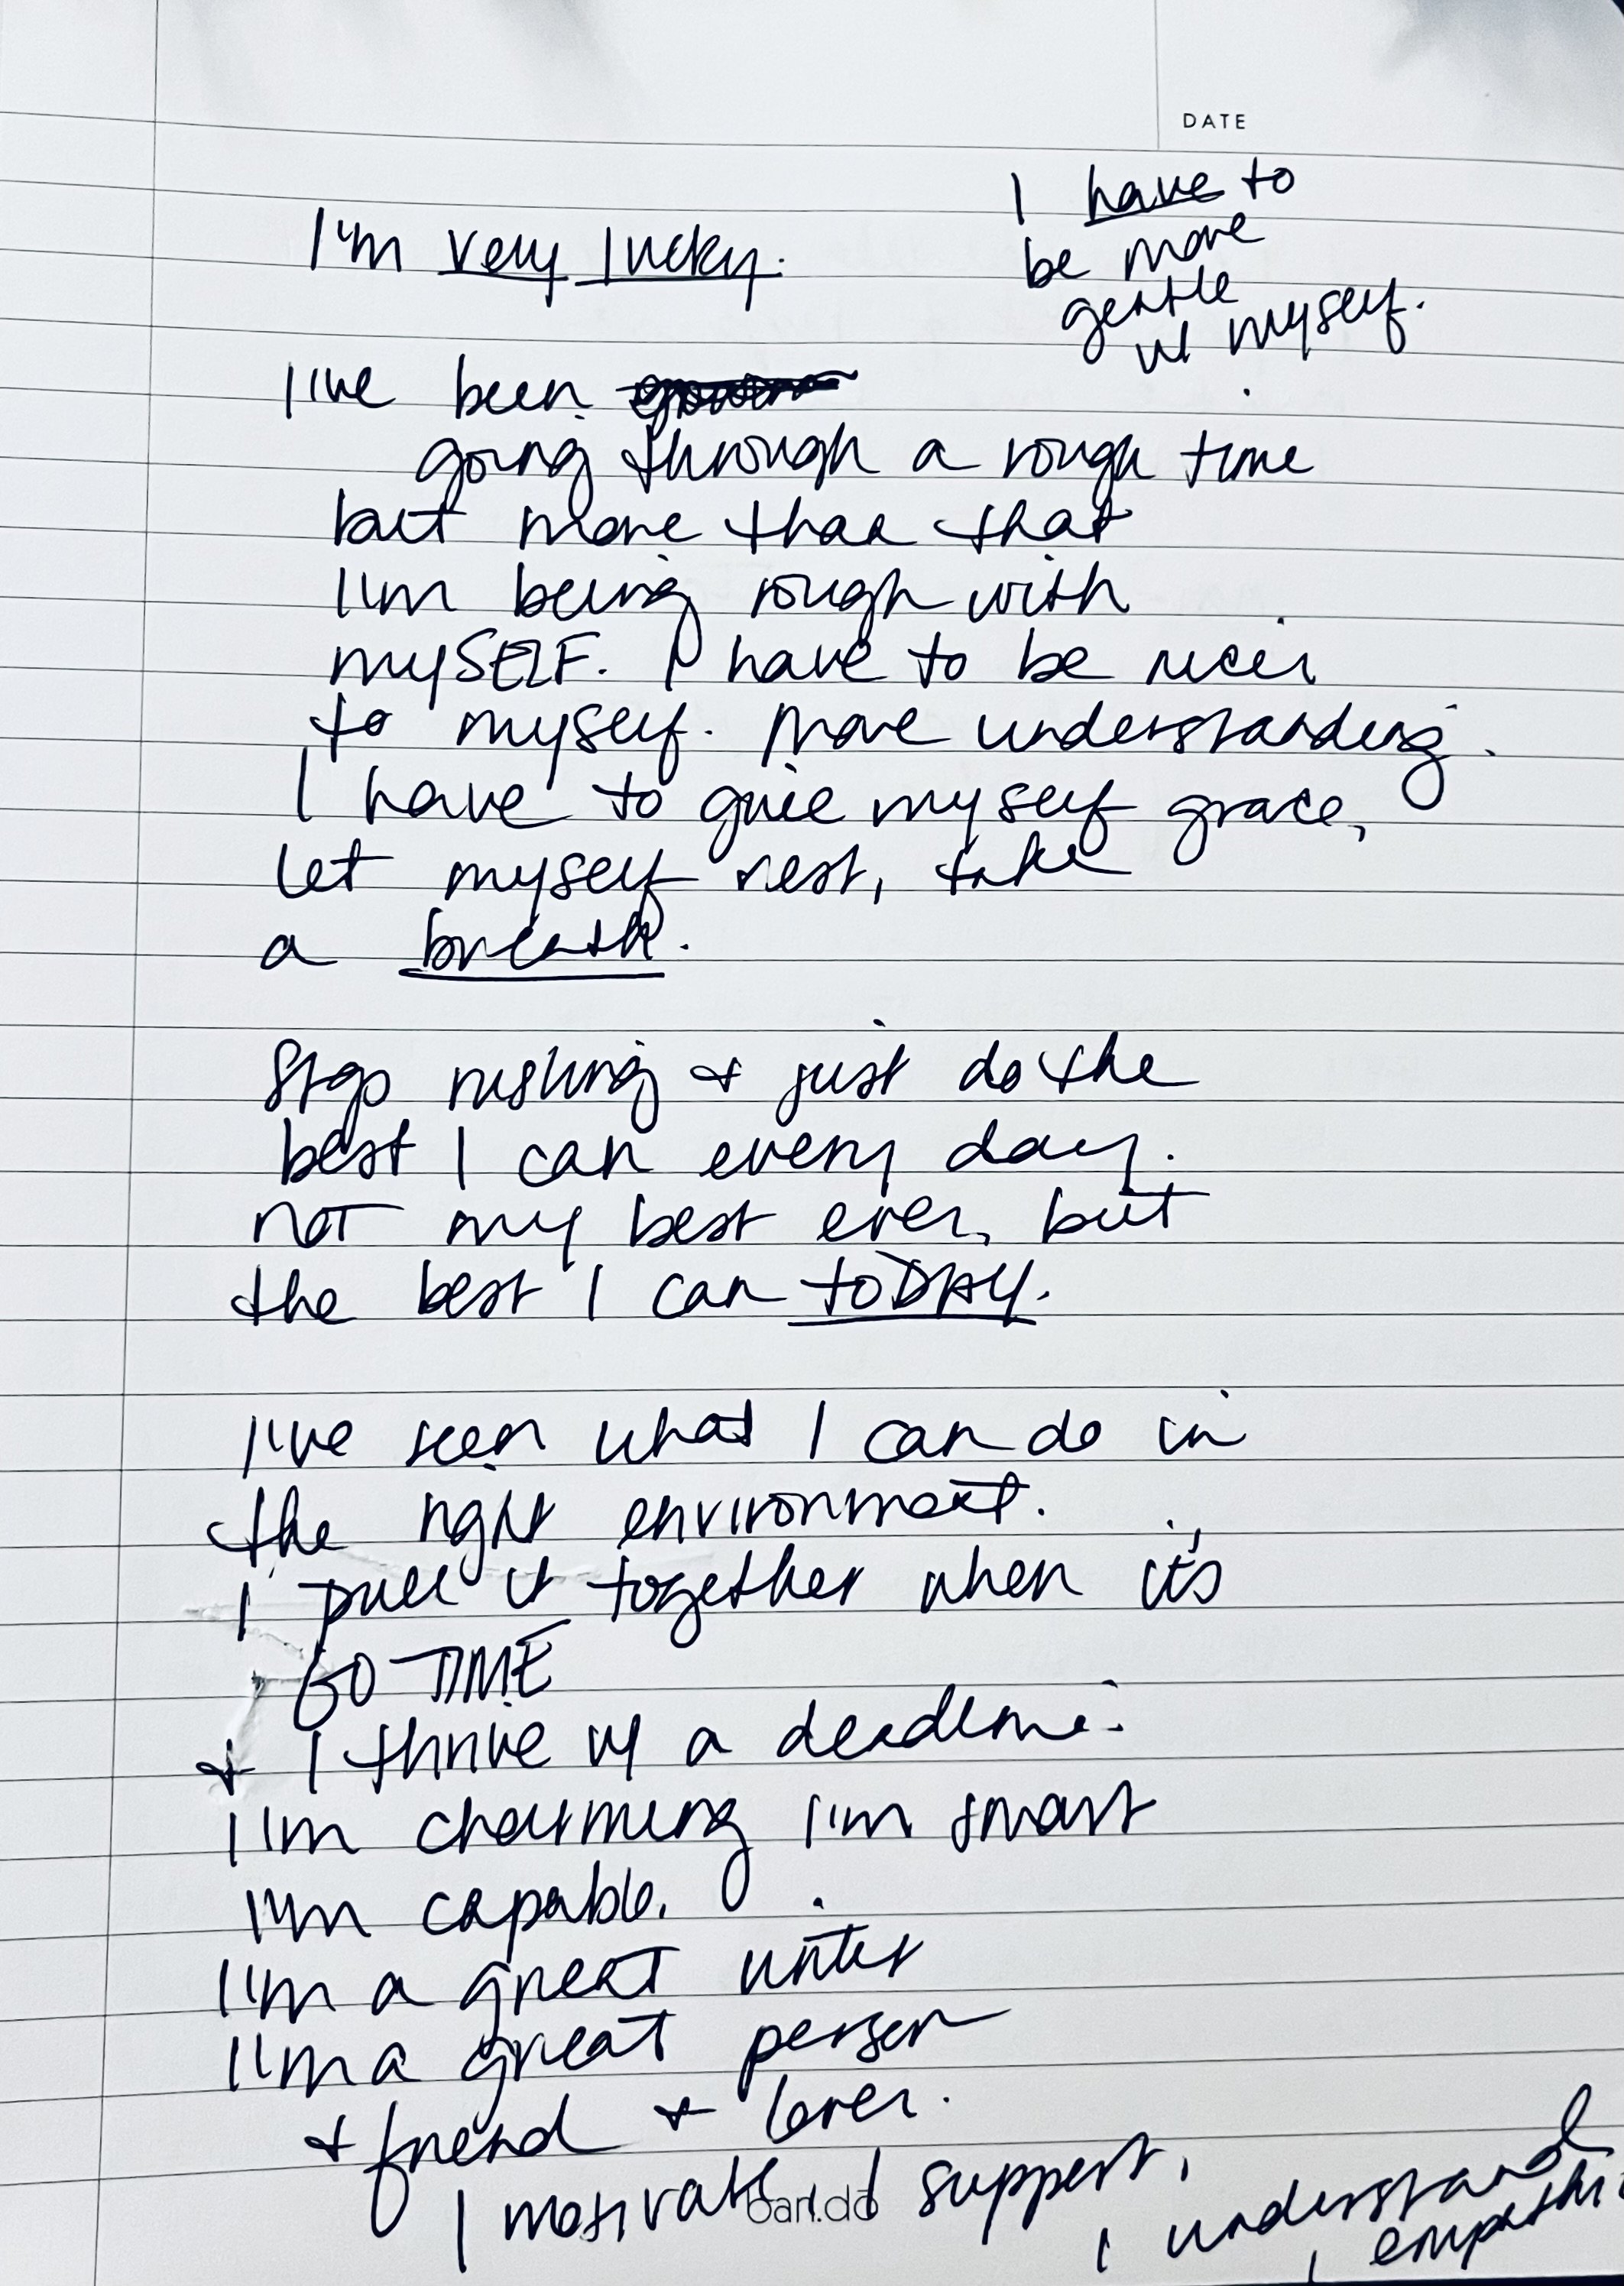 DATE
I have to
be more
gentle
w/ myself.
I'm very lucky.
I've been
going through a rough time
but more than that
I'm being rough with
mySELF. I have to be nicer
to myself. More understanding.
I have to give myself grace,
let myself rest, take
a breath.
Stop rushing & just do the
best I can every day.
not my best ever, but
the best I can toDAY.
I've seen what I can do in
the right environment.
I pull it together when it's
GO TIME
& I thrive w/ a deadline.
I'm charming I'm smart
I'm capable.
I'm a great writer
I'm a great person
& friend & lover.
I motivate, I support,
I understand
I empathi